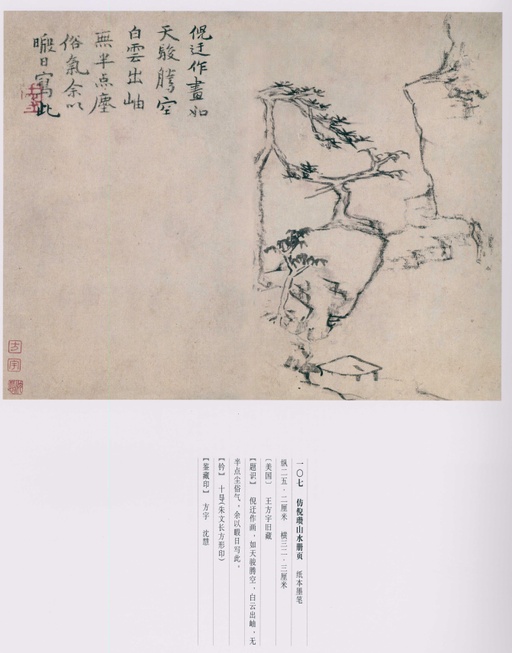 倪迂作畫如
天駿騰空
白雲出岫
無半点塵
俗氣余以
暇日寫此
方宇
一〇七 仿倪瓒山水册页 纸本墨笔
纵二五·二厘米 横三二·三厘米
〔美国〕 王方宇旧藏
【题识】 倪迂作画,如天骏腾空,白云出岫,无
半点尘俗气,余以暇日写此。
【钤】 十㝵(朱文长方形印)
【鉴藏印】 方宇 沈慧